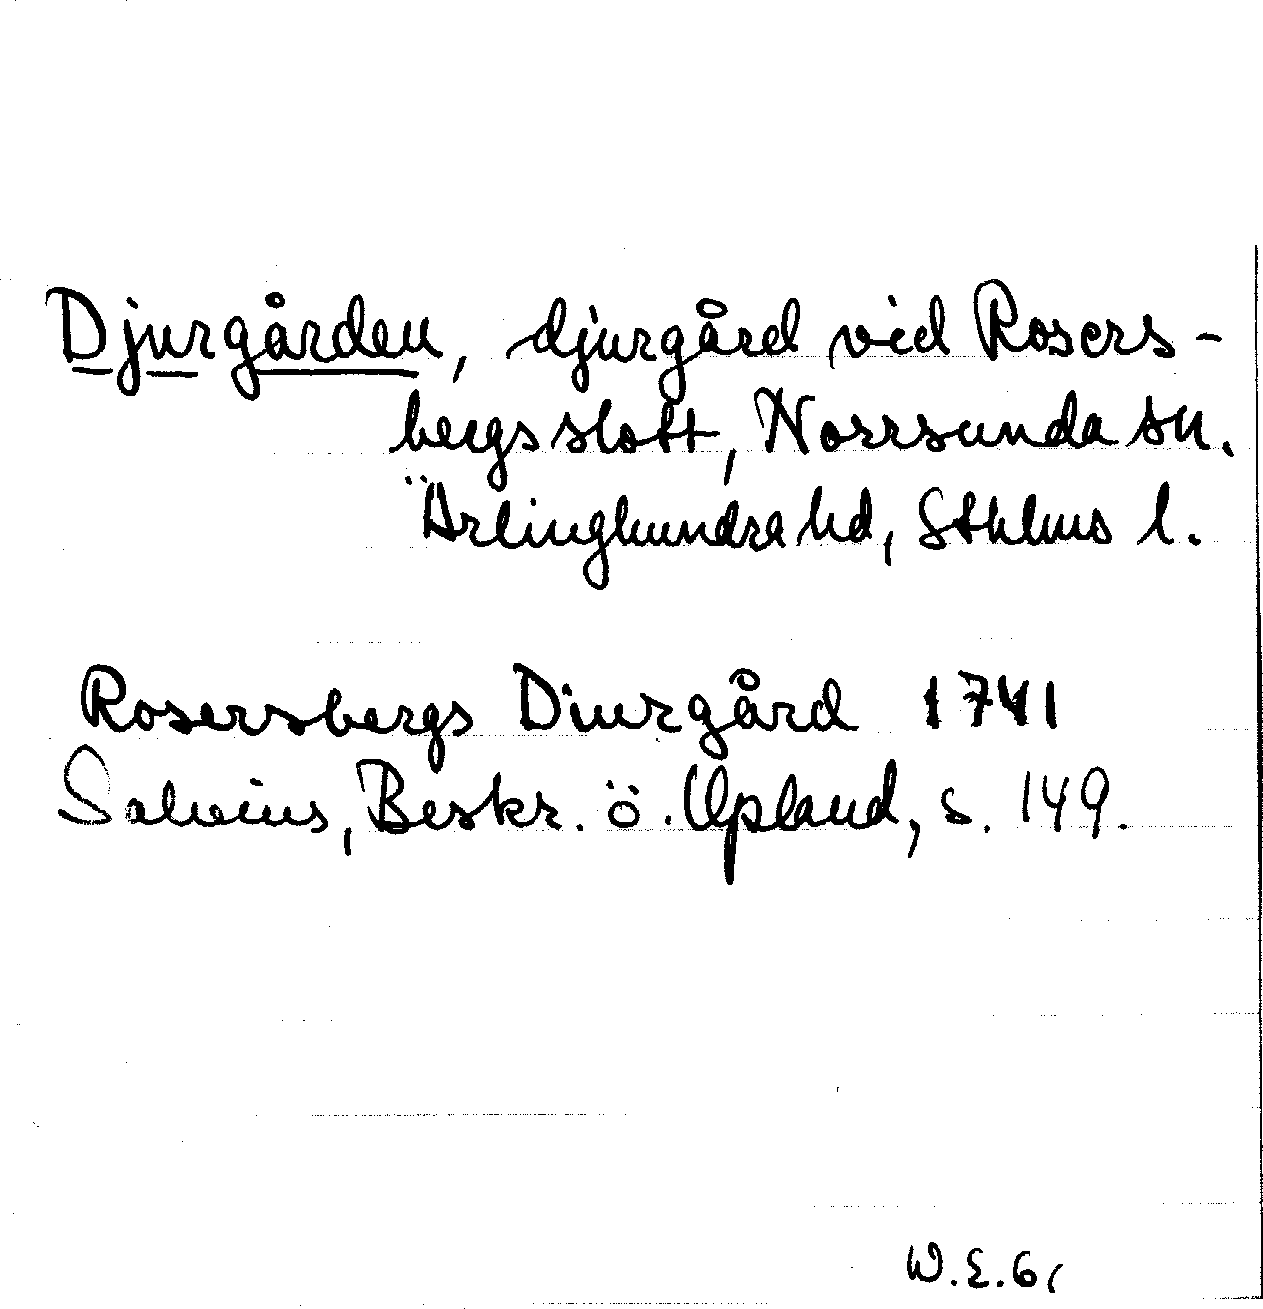 Djurgården, djurgård vid Rosers-
bergs slott, Norrsunda sn.
Ärlinghundra hd, Sthlms l.
Rosersbergs Diurgård 1741
Salvius, Beskr. ö. Upland, s. 149.
W.E.G.